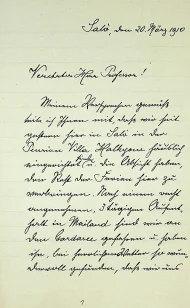 Salò, den 20. März 1910
Verehrter Herr Professor!
Meinem Versprechen gemäß
teile ich Ihnen mit, daß wir seit
gestern hier in Salò in der
Pension Villa häuslich
eingerichtet sind die Absicht haben,
den Rest der Ferien hier zu
verbringen. Nach einem recht
angenehmen, 3 tägigen Aufent-
halt in Mailand sind wir an
den Gardasee gefahren u. haben
ihn, bei herrlichem Wetter so wun-
dervoll gefunden, daß wir uns